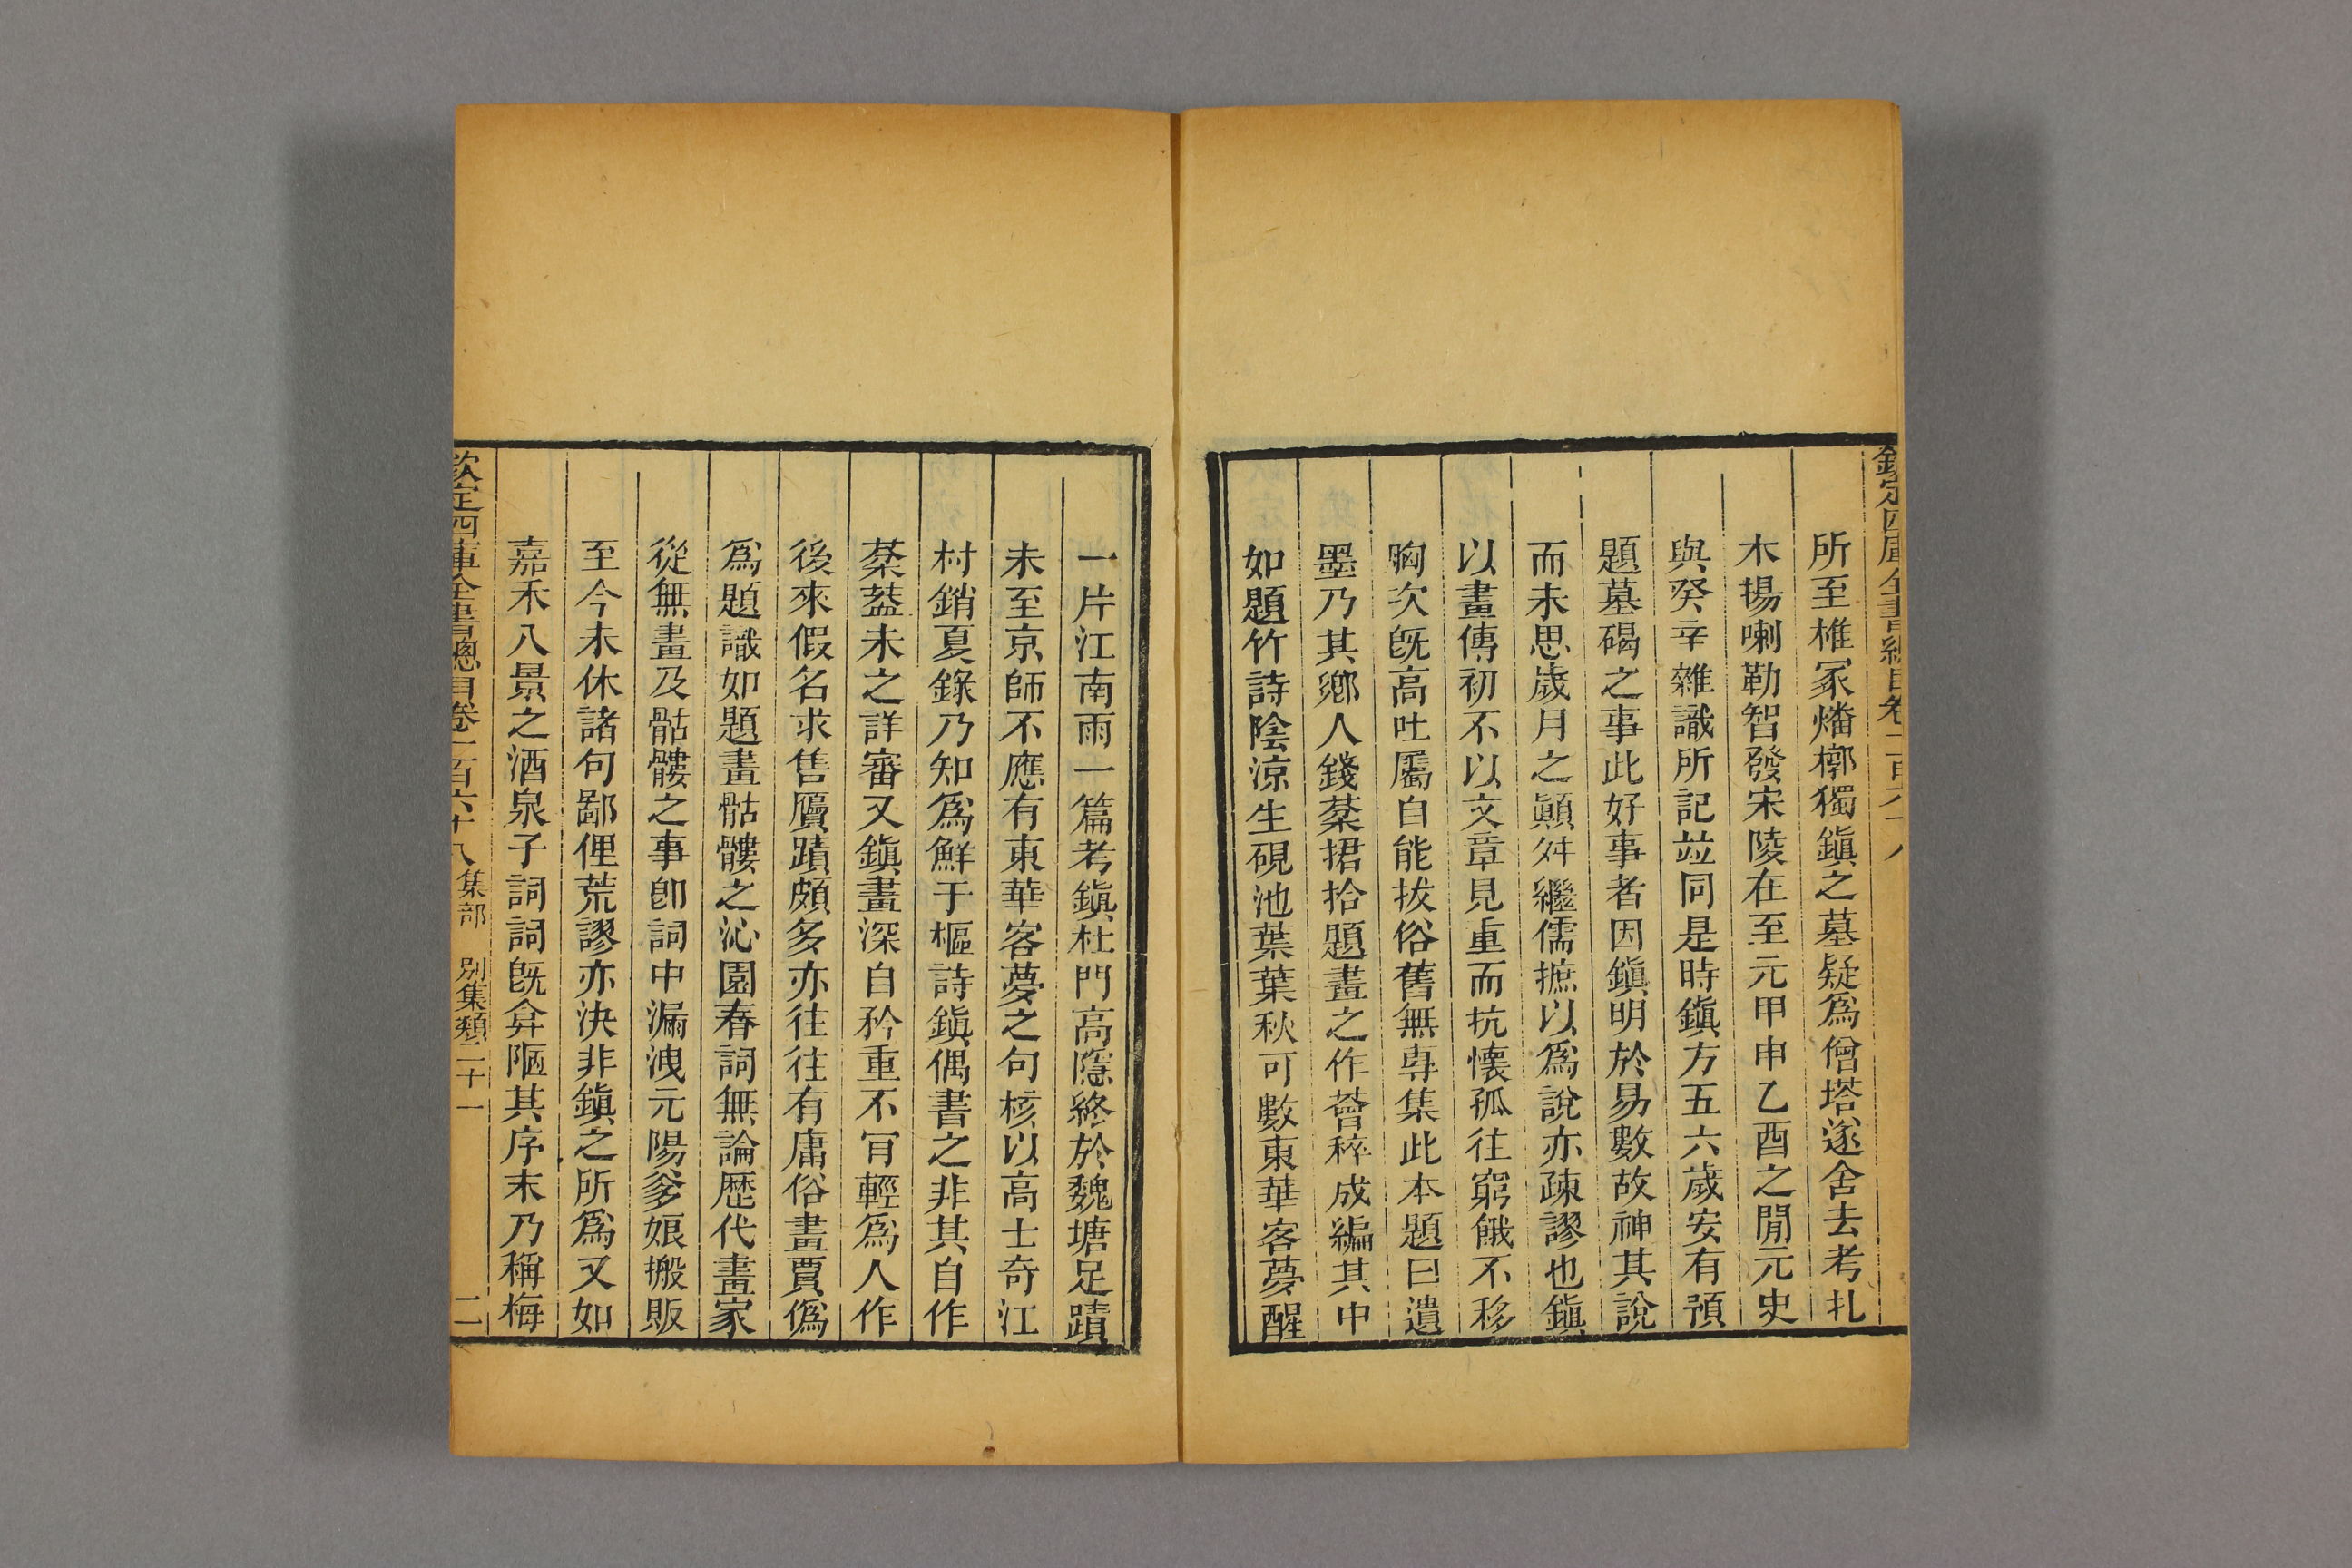 欽定四庫全書總目卷一百六十八
所至椎冢燔槨獨鎭之墓疑爲僧塔遂舍去考扎
木揚喇勒智發宋陵在至元甲申乙酉之閒元史
與癸辛雜識所記竝同是時鎭方五六歲安有預
題墓碣之事此好事者因鎭明於易數故神其說
而未思歲月之顚舛繼儒摭以爲說亦疎謬也鎭
以畫傳初不以文章見重而抗懷孤往窮餓不移
胸次旣高吐屬自能拔俗舊無專集此本題曰遺
墨乃其鄉人錢棻捃拾題畫之作薈稡成編其中
如題竹詩陰涼生硯池葉葉秋可數東華客夢醒
一片江南雨一篇考鎭杜門高隱終於魏塘足蹟
未至京師不應有東華客夢之句核以高士奇江
村銷夏錄乃知爲鮮于樞詩鎭偶書之非其自作
棻葢未之詳審又鎭畫深自矜重不肎輕爲人作
後來假名求售贗蹟頗多亦往往有庸俗畫賈僞
爲題識如題畫骷髏之沁園春詞無論歷代畫家
從無畫及骷髏之事卽詞中漏洩元陽爹娘搬販
至今未休諸句鄙俚荒謬亦決非鎭之所爲又如
嘉禾八景之酒泉子詞詞旣弇陋其序末乃稱梅
欽定四庫全書總目卷一百六十八 集部 別集類二十一 二